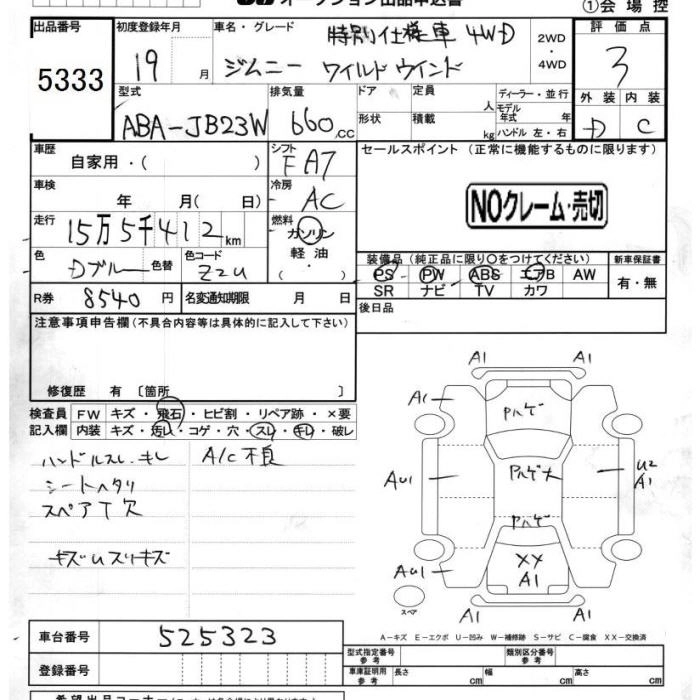 オークション出品申込書
①会場控
出品番号 初度登録年月 車名・グレード 特別仕様車 4WD 2WD・4WD 評価点
5333 19 月 ジムニー ワイルドウインド 3
型式 排気量 ドア 定員 人 ディーラー・並行 外装 内装
ABA-JB23W 660.CC 形状 積載 kg モデル年式 年 ハンドル 左・右 D C
車歴 自家用・( ) シフト FA7 セールスポイント (正常に機能するものに限ります)
車検 年 月( 日) 冷房 AC
NOクレーム・売切
走行 15万5千412km 燃料 ガソリン・軽油・( )
色 Dブルー 色替 色コード Z2U
装備品(純正品に限り○をつけてください) 新車保証書
PS PW ABS エアB AW 有・無
SR ナビ TV カワ
R券 8540円 名変通知期限 月 日 後日品
注意事項申告欄(不具合内容等は具体的に記入して下さい)
修復歴 有〔箇所 〕
検査員記入欄 FW キズ・飛石・ヒビ割・リペア跡・×要
内装 キズ・汚れ・コゲ・穴・スレ・キレ・破レ
ハンドルスレ.キレ A/C不良
シートヘタリ
スペアT欠
キズUスリキズ
A1 A1
A1 Pハゲ
AU1 Pハゲ大 U2 A1
Pハゲ
AU1 XX A1
スペア
A-キズ E-エクボ U-凹み W-補修跡 S-サビ C-腐食 XX-交換済
車台番号 525323
型式指定番号 参考 類別区分番号 参考
登録番号 車庫証明用 参考 長さ cm 幅 cm 高さ cm
希望出品コーナー